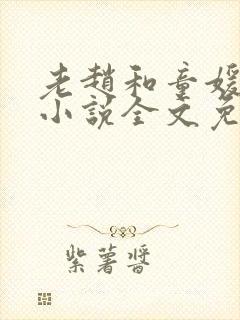 老趙和童媛
小說全文免
紫薯醬